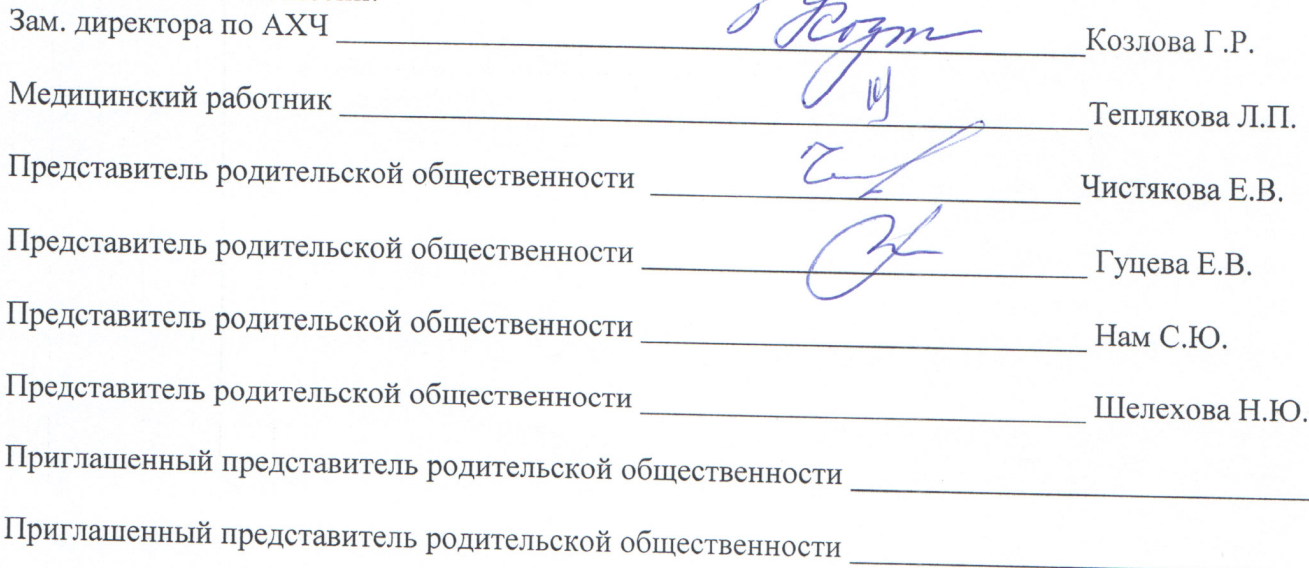 Зам. директора по АХЧ Козлова Г.Р.
Медицинский работник Теплякова Л.П.
Представитель родительской общественности Чистякова Е.В.
Представитель родительской общественности Гуцева Е.В.
Представитель родительской общественности Нам С.Ю.
Представитель родительской общественности Шелехова Н.Ю.
Приглашенный представитель родительской общественности
Приглашенный представитель родительской общественности